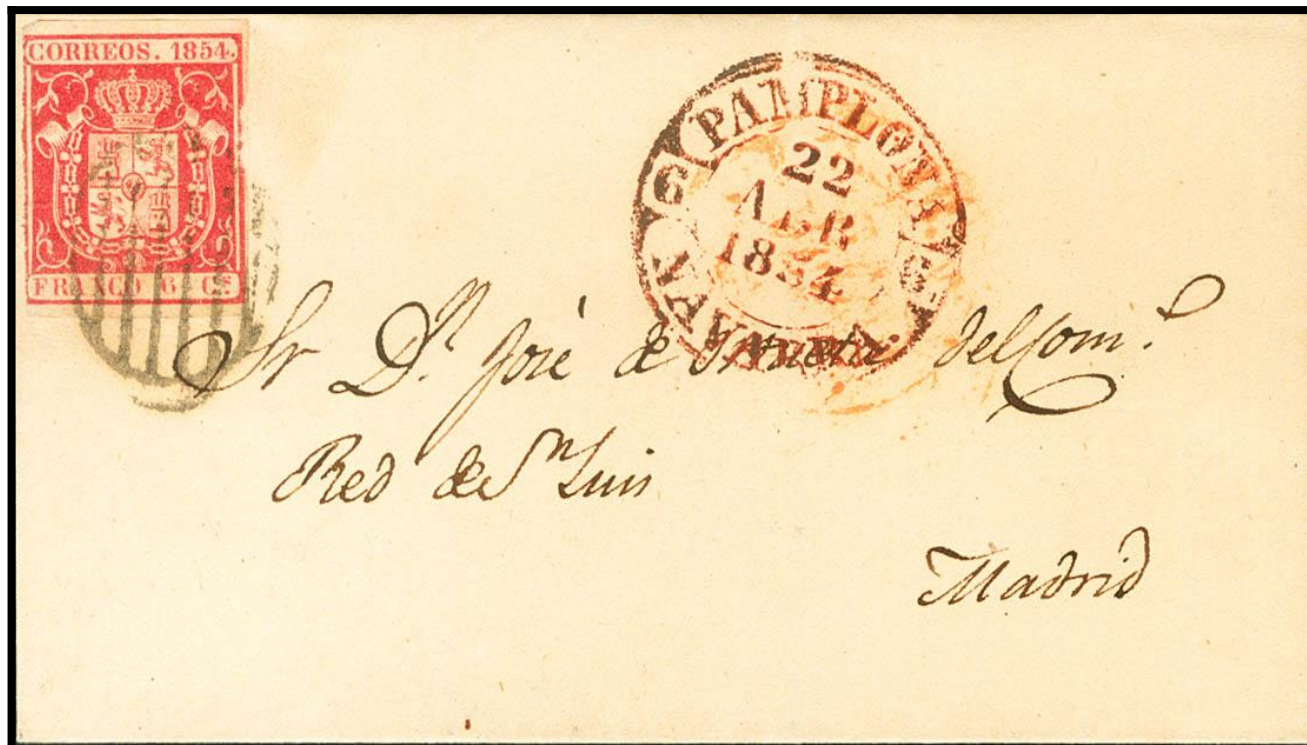 CORREOS. 1854.
FRANCO 6 Cs
PAMPLONA.
22
ABR
1854
NAVARRA.
Sr Dn. José de delCom.o
Red de Sn Luis
Madrid